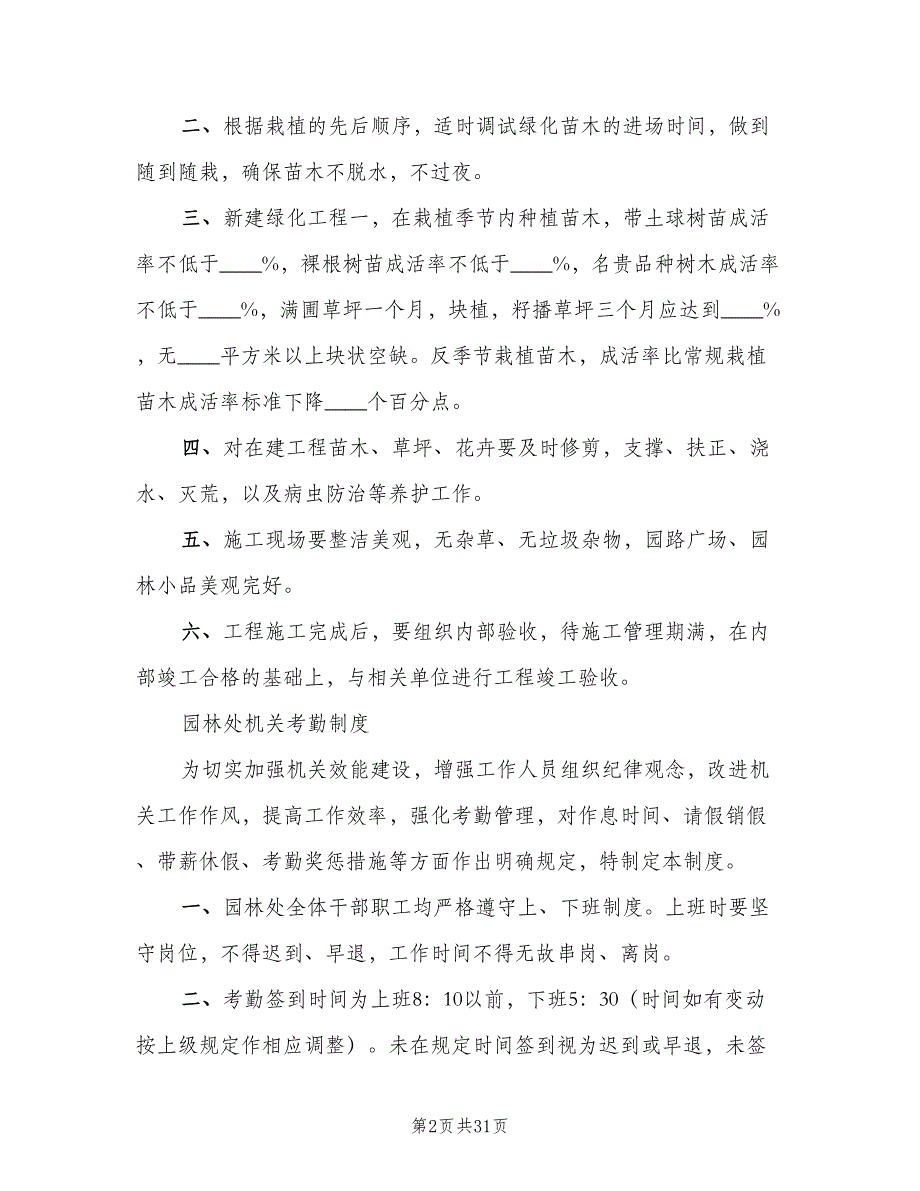 二、根据栽植的先后顺序，适时调试绿化苗木的进场时间，做到
随到随栽，确保苗木不脱水，不过夜。
三、新建绿化工程一，在栽植季节内种植苗木，带土球树苗成活
率不低于____%，裸根树苗成活率不低于____%，名贵品种树木成活率
不低于____%，满圃草坪一个月，块植，籽播草坪三个月应达到____%
，无____平方米以上块状空缺。反季节栽植苗木，成活率比常规栽植
苗木成活率标准下降____个百分点。
四、对在建工程苗木、草坪、花卉要及时修剪，支撑、扶正、浇
水、灭荒，以及病虫防治等养护工作。
五、施工现场要整洁美观，无杂草、无垃圾杂物，园路广场、园
林小品美观完好。
六、工程施工完成后，要组织内部验收，待施工管理期满，在内
部竣工合格的基础上，与相关单位进行工程竣工验收。
园林处机关考勤制度
为切实加强机关效能建设，增强工作人员组织纪律观念，改进机
关工作作风，提高工作效率，强化考勤管理，对作息时间、请假销假
、带薪休假、考勤奖惩措施等方面作出明确规定，特制定本制度。
一、园林处全体干部职工均严格遵守上、下班制度。上班时要坚
守岗位，不得迟到、早退，工作时间不得无故串岗、离岗。
二、考勤签到时间为上班8：10以前，下班5：30（时间如有变动
按上级规定作相应调整）。未在规定时问签到视为迟到或早退，未签
第2页共31页